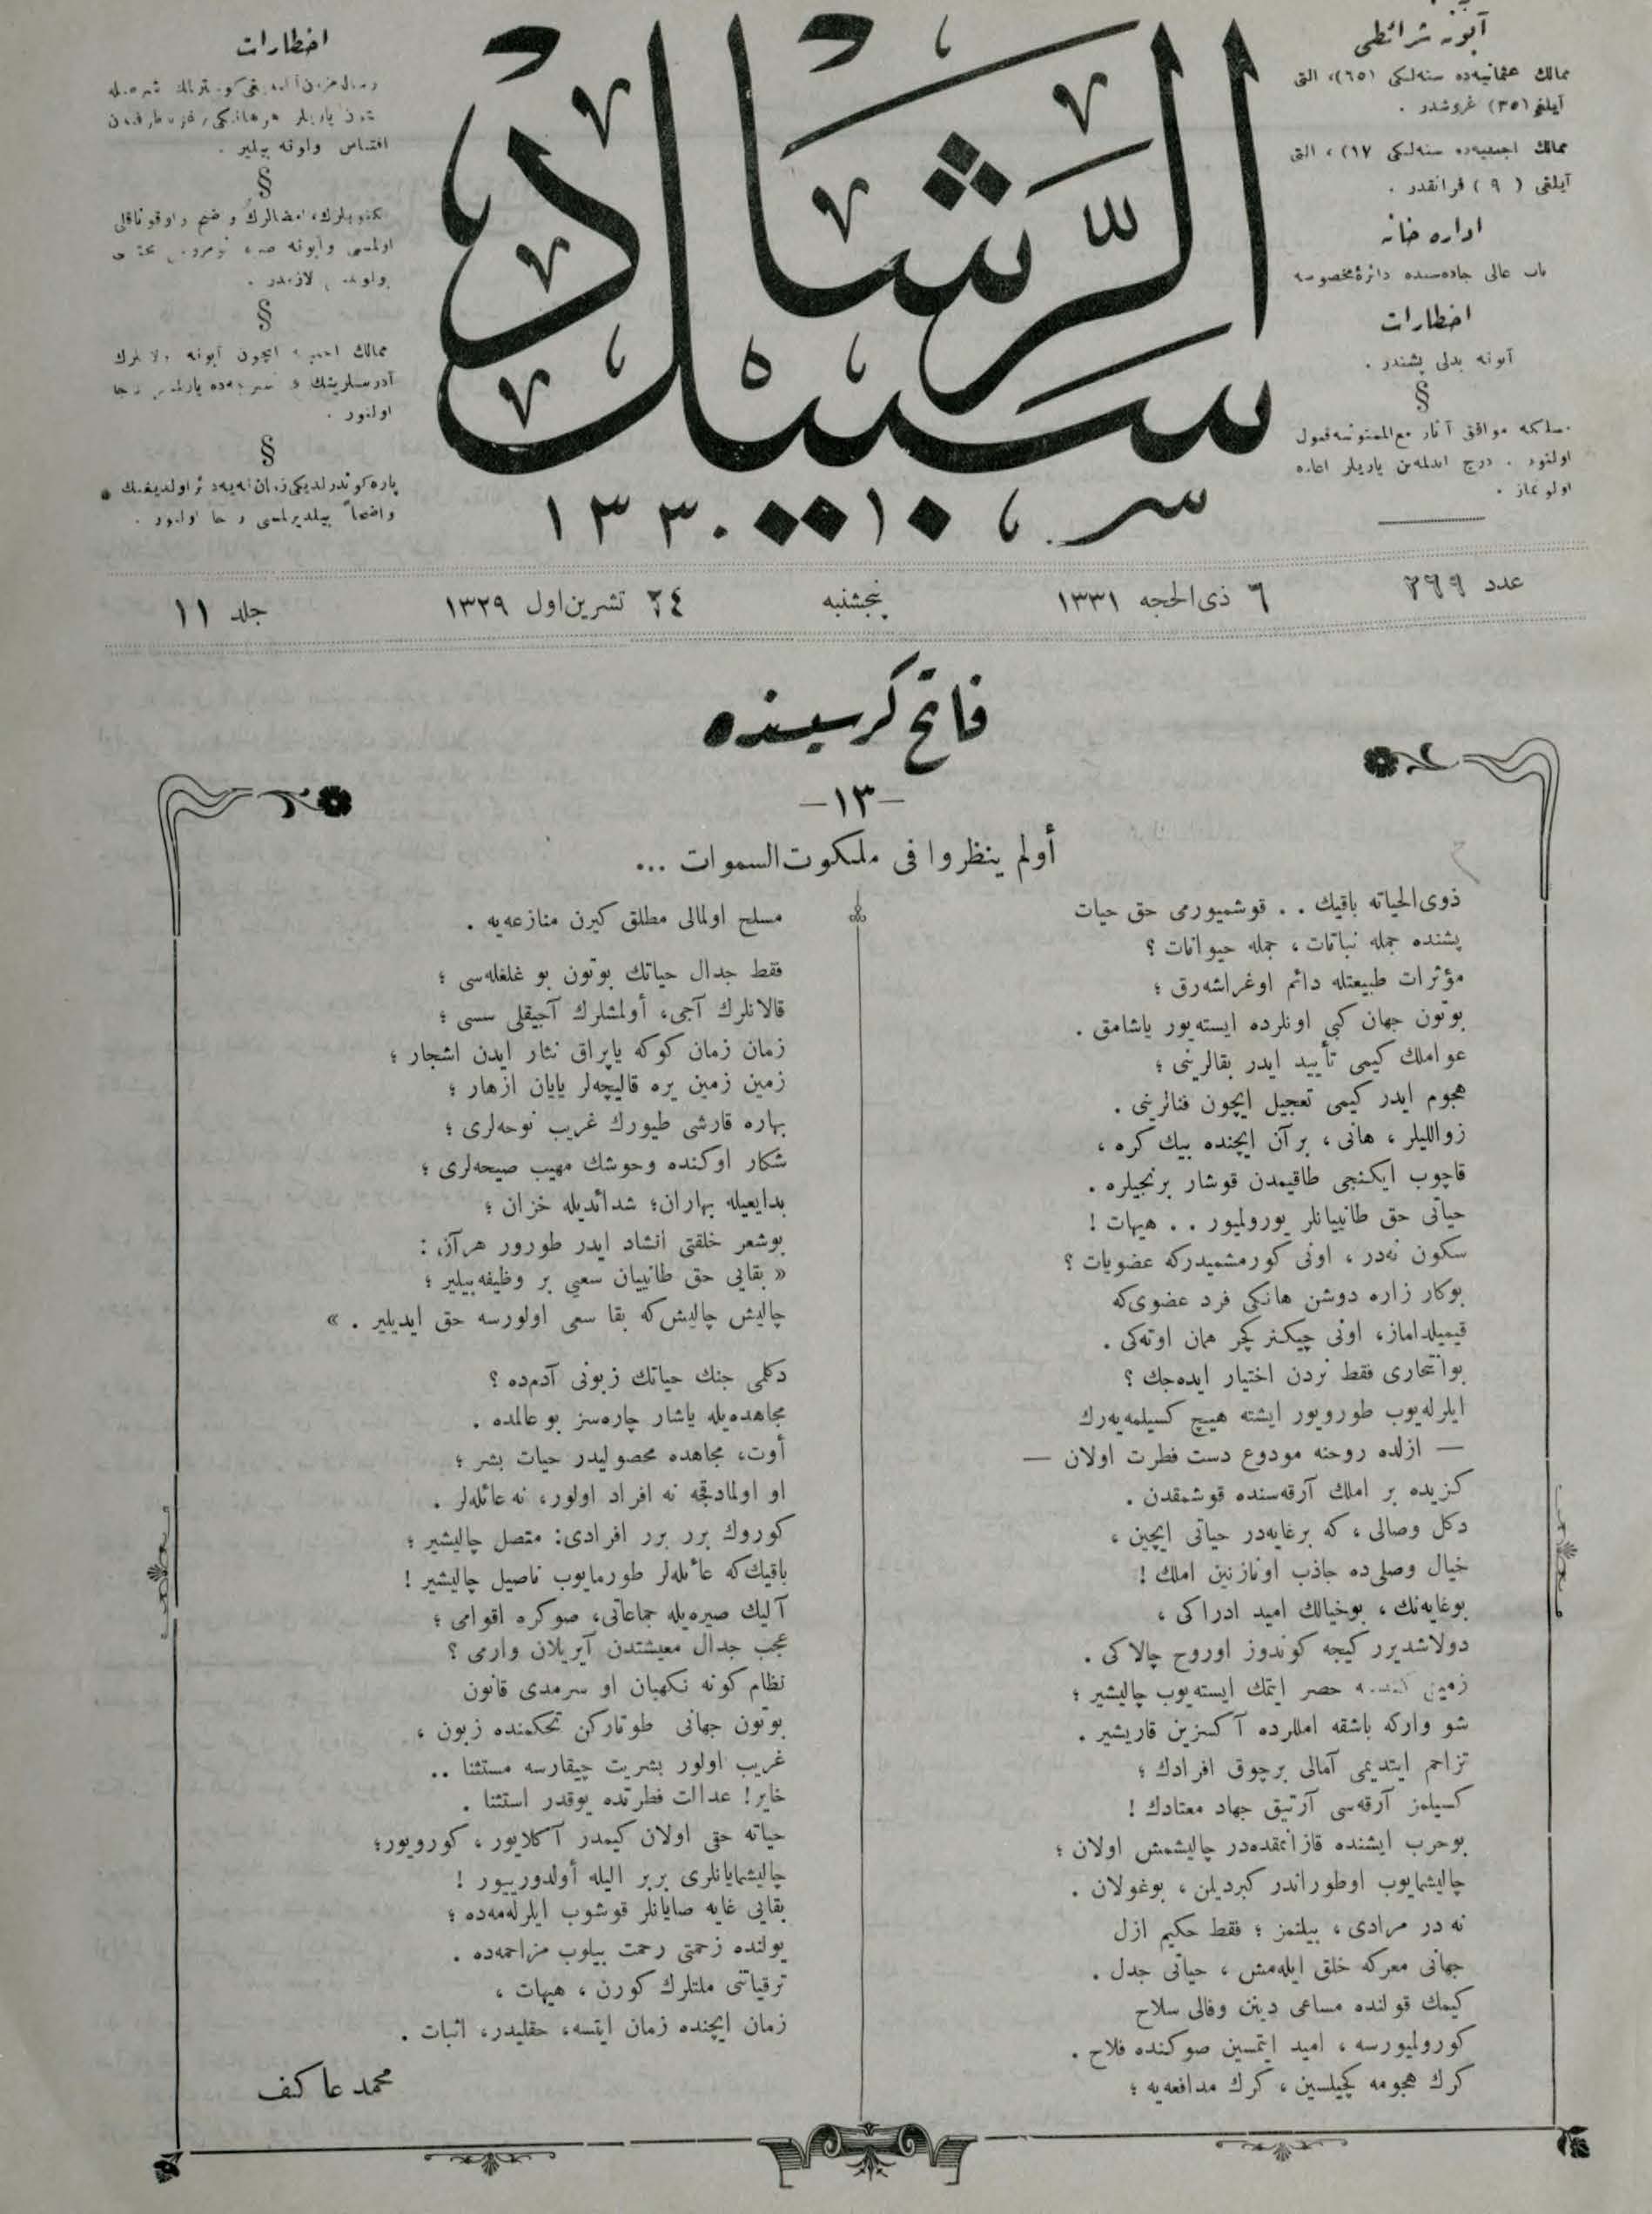 آبونه شرائطی
ممالك عثمانیه‌ده سنه‌لکی (٦٥)، التی
آیلغی (٣٥) غروشدر .
ممالك اجنبیه‌ده سنه‌لکی (١٧) ، التی
آیلغی ( ٩ ) فرانقدر .
اداره خانه
باب عالی جاده‌سنده دائرهٔ مخصوصه
اخطارات
آبونه بدلی پشندر .
§
مسلکه موافق آثار مع‌الممنونیه قبول
اولنور . درج ایدلمه‌ین یازیلر اعاده
اولونماز .
سبیل الرشاد
سر ١٣٣٠
اخطارات
اقتباس اولونه بیلیر .
§
مکتوبلرك، امضالرك واضح واوقوناقلی
اولمسی وآبونه صره نومروسنی
لازمدر .
§
ممالك اجنبیه ایچون آبونه اولانلرك
آدرسلرینك فرانسزجه‌ده یازلمسی رجا
اولنور .
§
پاره کوندرلدیکی زمان نه‌یه دائر اولدیغنك
واضحاً بیلدیرلمسی رجا اولنور .
عدد ٢٦٩
٦ ذی‌الحجه ١٣٣١
پنجشنبه
٢٤ تشرین‌اول ١٣٢٩
جلد ١١
فاتح کرسیسنده
—١٣—
أولم ینظروا فی ملکوت‌السموات ...
ذوی‌الحیاته باقیك . . قوشمیورمی حق حیات
پشنده جمله نباتات ، جمله حیوانات ؟
مؤثرات طبیعتله دائم اوغراشه‌رق ؛
بوتون جهان کبی اونلرده ایسته‌یور یاشامق .
عواملك کیمی تأیید ایدر بقالرینی ؛
هجوم ایدر کیمی تعجیل ایچون فنالرینی .
زواللیلر ، هانی ، بر آن ایچنده بیك کره ،
قاچوب ایکنجی طاقیمدن قوشار برنجیلره .
حیاتی حق طانییانلر یورولمیور . . هیهات !
سکون نه‌در ، اونی کورمشمیدرکه عضویات ؟
بوکار زاره دوشن هانکی فرد عضوی‌که
قیمیلداماز، اونی چیکنر کچر همان اوته‌کی .
بو انتحاری فقط نردن اختیار ایده‌جك ؟
ایلرله‌یوب طورویور ایشته هیچ کسیلمه‌یه‌رك
— ازلده روحنه مودوع دست فطرت اولان —
کزیده بر املك آرقه‌سنده قوشمقدن .
دکل وصالی ، که برغایه‌در حیاتی ایچین ،
خیال وصلی‌ده جاذب اونازنین املك !
بوغایه‌نك ، بوخیالك امید ادراکی ،
دولاشدیرر کیجه کوندوز اوروح چالاکی .
زمینی حصر ایتمك ایسته‌یوب چالیشیر ؛
شو وارکه باشقه امللرده آکسزین قاریشیر .
تزاحم ایتدیمی آمالی برچوق افرادك ؛
کسیلمز آرقه‌سی آرتیق جهاد معتادك !
بوحرب ایشنده قازانمقده‌در چالیشمش اولان ؛
چالیشمایوب اوطوراندر کبردیلن ، بوغولان .
نه در مرادی ، بیلنمز ؛ فقط حکیم ازل
جهانی معرکه خلق ایله‌مش ، حیاتی جدل .
کیمك قولنده مساعی دینن وفالی سلاح
کورولمیورسه ، امید ایتمسین صوکنده فلاح .
کرك هجومه کچیلسین ، کرك مدافعه‌یه ؛
مسلح اولمالی مطلق کیرن منازعه‌یه .
فقط جدال حیاتك بوتون بو غلغله‌سی ؛
قالانلرك آجی، أولمشلرك آجیقلی سسی ؛
زمان زمان کوکه یاپراق نثار ایدن اشجار ؛
زمین زمین یره قالیچه‌لر یایان ازهار ؛
بهاره قارشی طیورك غریب نوحه‌لری ؛
شکار اوکنده وحوشك مهیب صیحه‌لری ؛
بدایعیله بهاران؛ شدائدیله خزان ؛
بوشعر خلقتی انشاد ایدر طورور هرآن :
« بقایی حق طانییان سعیی بر وظیفه بیلیر ؛
چالیش چالیش‌که بقا سعی اولورسه حق ایدیلیر . »
دکلمی جنك حیاتك زبونی آدم‌ده ؟
مجاهده‌یله یاشار چاره‌سز بو عالمده .
أوت، مجاهده محصولیدر حیات بشر ؛
او اولمادقجه نه افراد اولور، نه عائله‌لر .
کوروك برر برر افرادی: متصل چالیشیر ؛
باقیك‌که عائله‌لر طورمایوب ناصیل چالیشیر !
آلیك صیره‌یله جماعاتی، صوکره اقوامی ؛
عجب جدال معیشتدن آیریلان وارمی ؟
نظام کونه نکهبان او سرمدی قانون
بوتون جهانی طوتارکن تحکمنده زبون ،
غریب اولور بشریت چیقارسه مستثنا ..
خایر! عدالت فطرتده یوقدر استثنا .
حیاته حقی اولان کیمدر آکلایور ، کورویور؛
چالیشمایانلری بربر الیله أولدورییور !
بقایی غایه صایانلر قوشوب ایلرله‌مه‌ده ؛
یولنده زحمتی رحمت بیلوب مزاحمه‌ده .
ترقیاتنی ملتلرك کورن ، هیهات ،
زمان ایچنده زمان ایتسه، حقلیدر، اثبات .
محمد عاکف